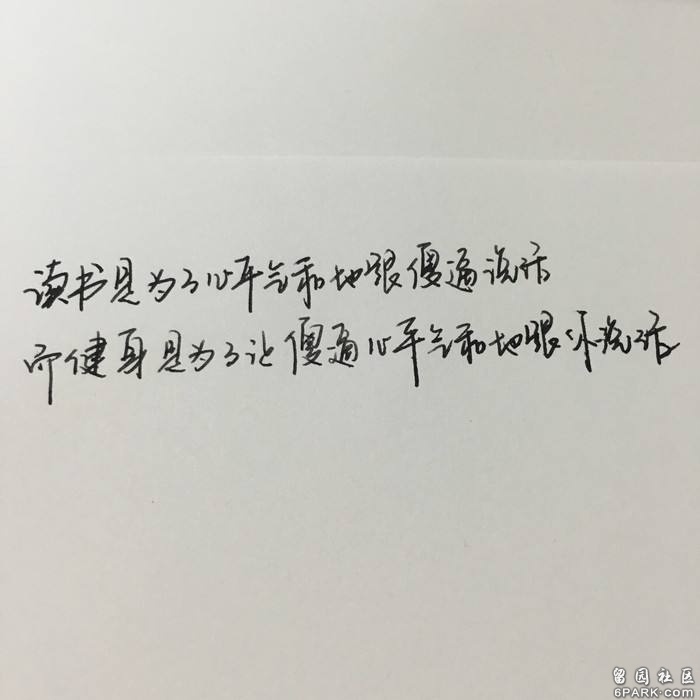 读书是为了心平气和地跟傻逼说话
而健身是为了让傻逼心平气和地跟你说话
留园社区
6PARK.COM